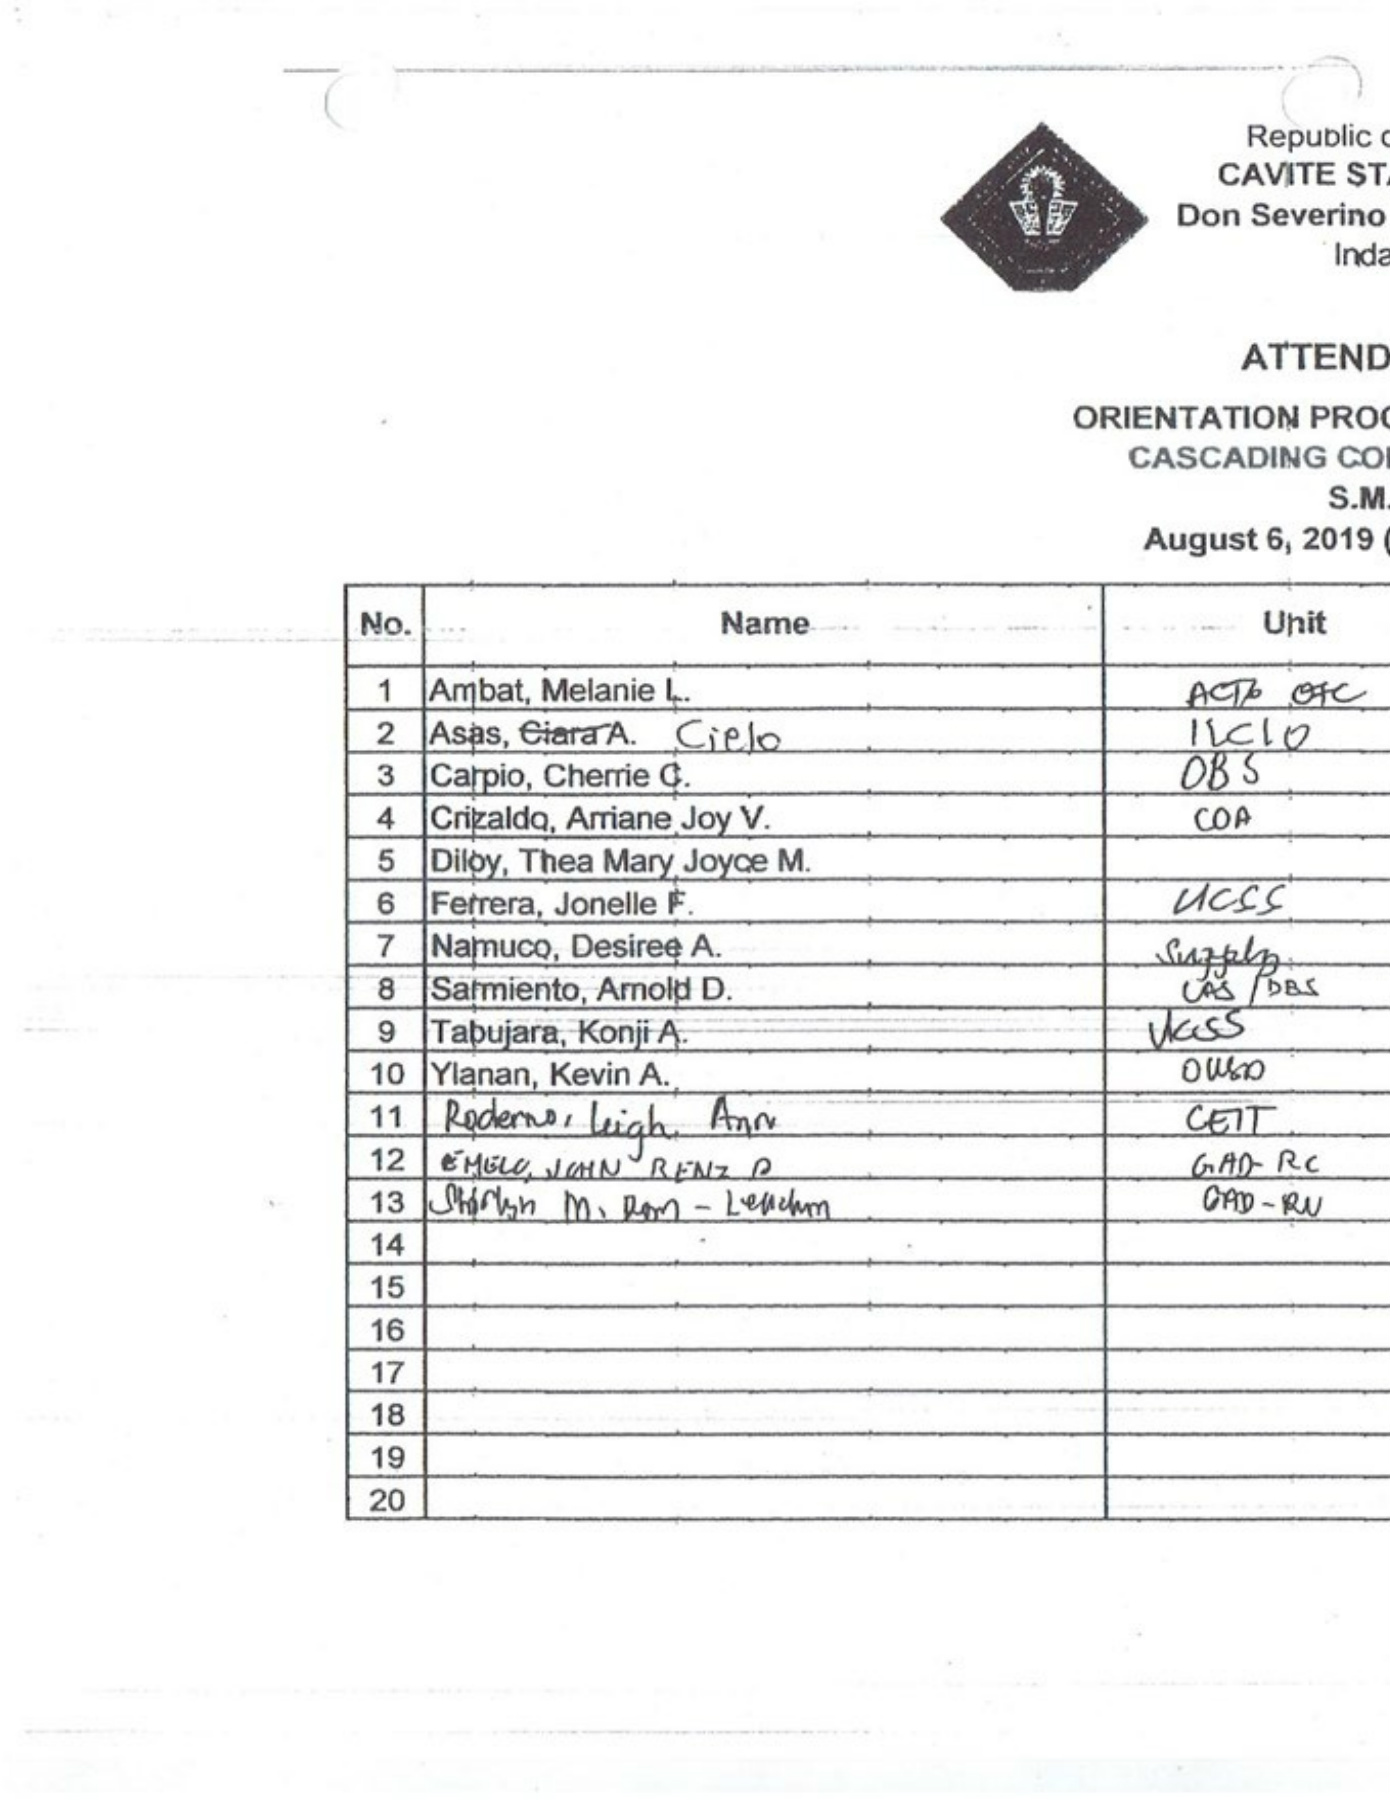 Republic
CAVITE STA
Don Severino
Inda
ATTEND
ORIENTATION PROG
CASCADING CO
S.M.
August 6, 2019 (
No. Name Unit
1 Ambat, Melanie L.
2 Asas, Ciara A. Cielo
3 Carpio, Cherrie C. OBS
4 Crizaldo, Arriane Joy V. COA
5 Diloy, Thea Mary Joyce M.
6 Ferrera, Jonelle F. UCSS
7 Namuco, Desiree A. Supply
8 Sarmiento, Arnold D. UAS/DBS
9 Tabujara, Konji A. UCSS
10 Ylanan, Kevin A.
11 Roderno, Leigh Ann CEIT
12 EMELO, JOHN RENZ D GAD-RC
13 M. GAD-RU
14
15
16
17
18
19
20